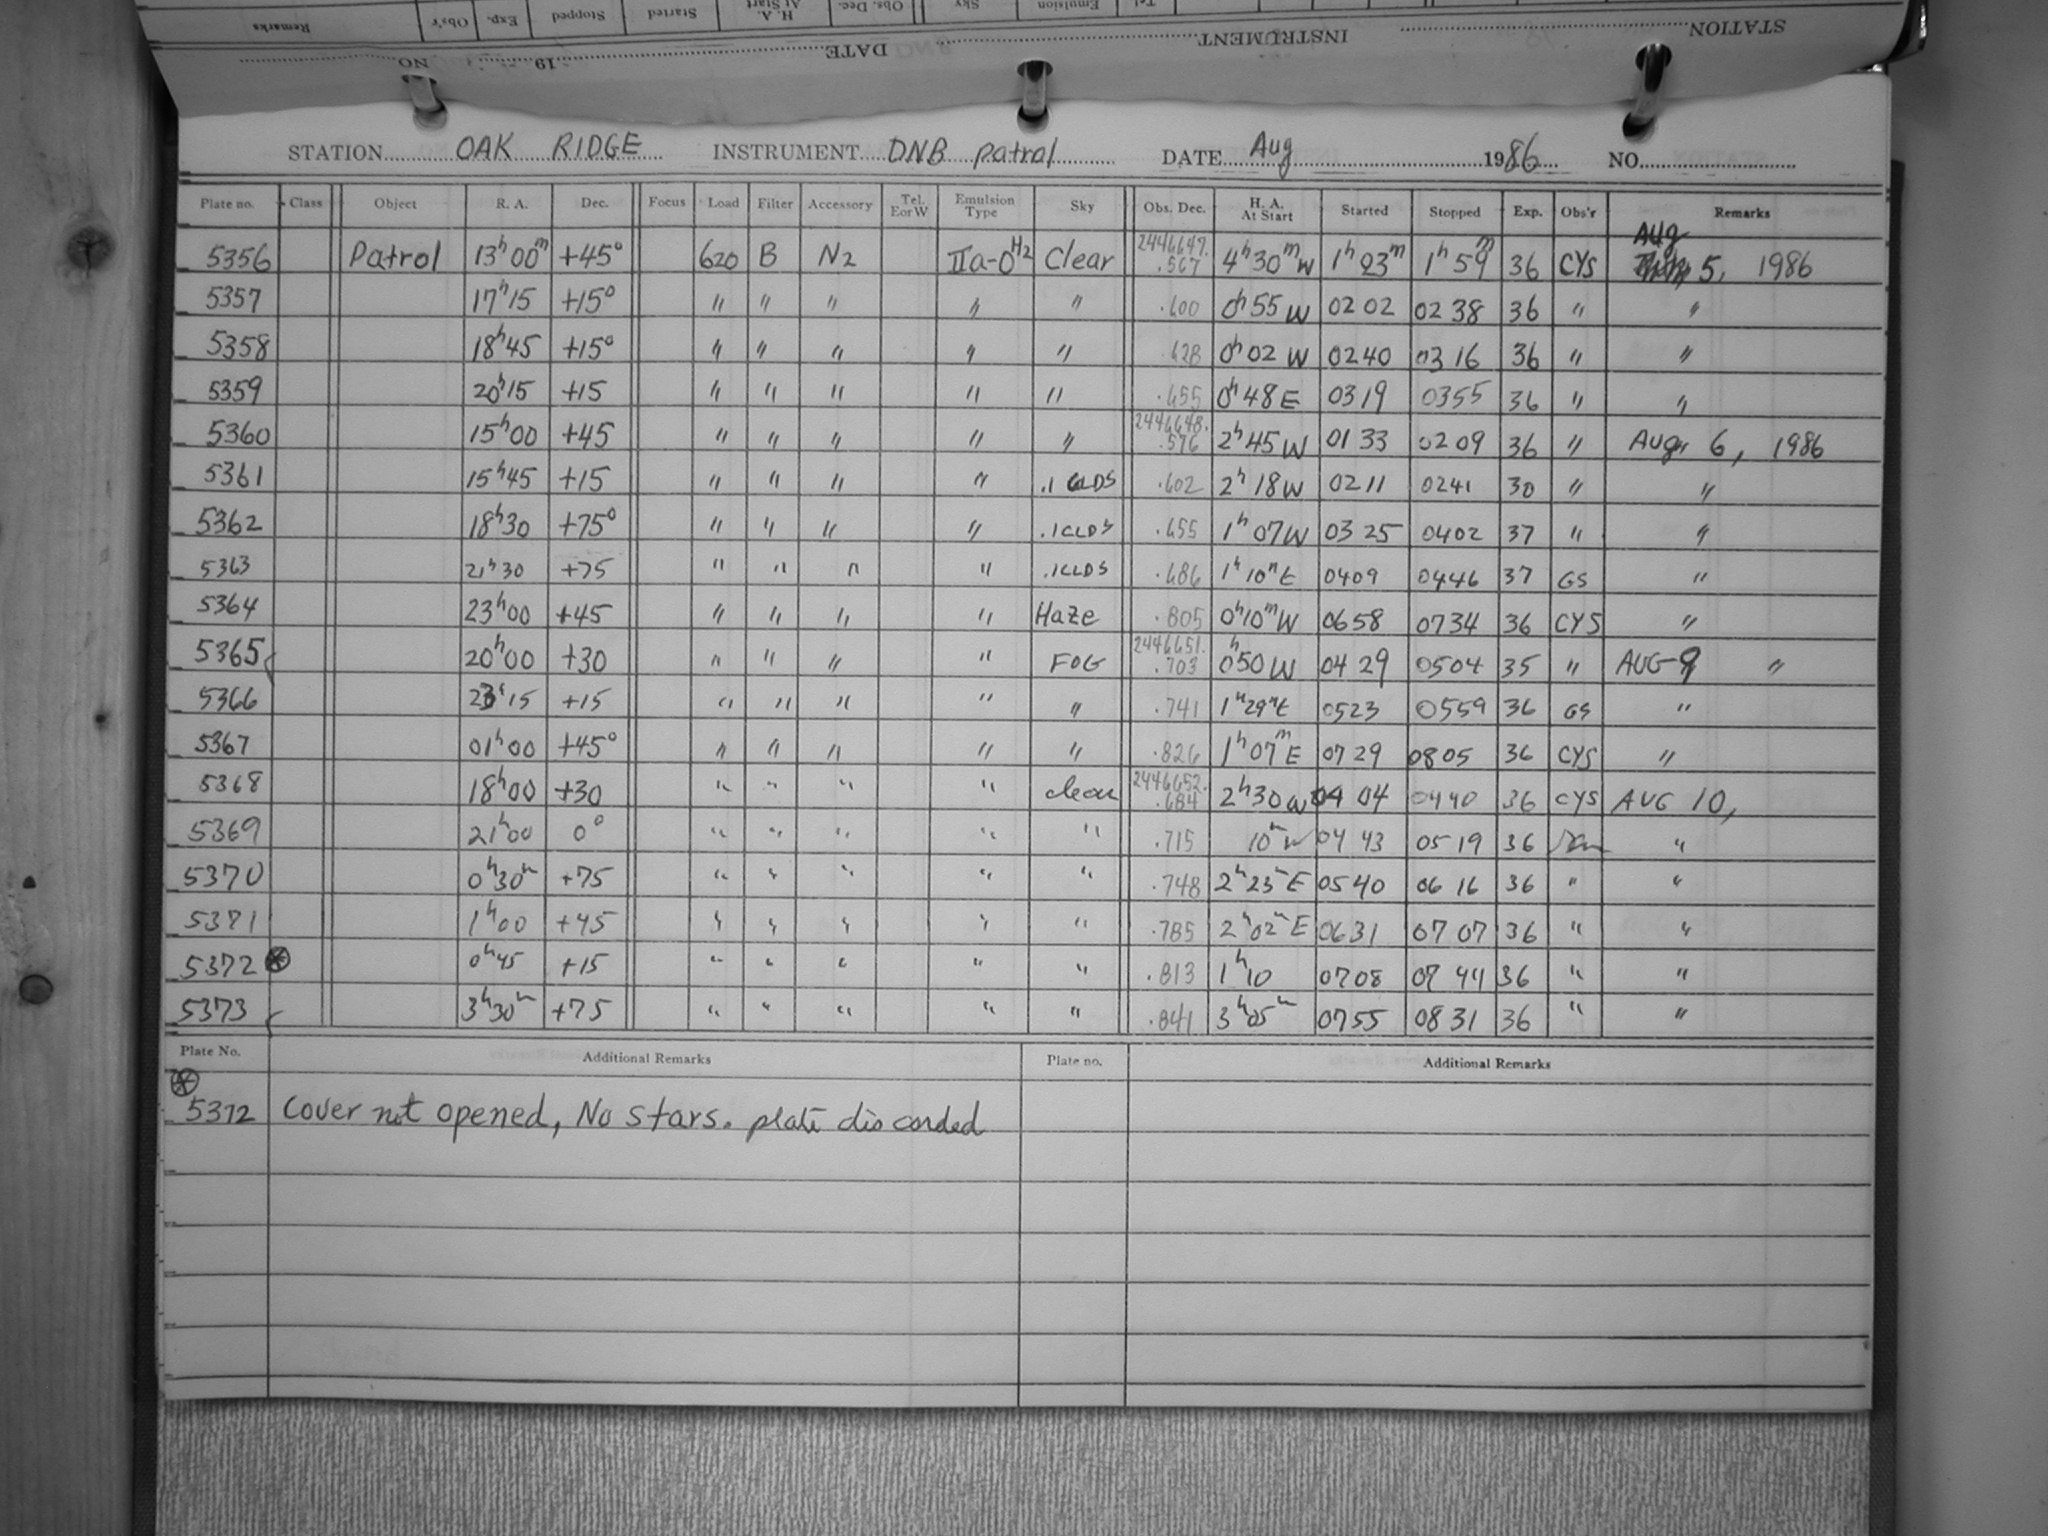 Remarks Obs'r Exp. Stopped Started H. A. At Start Obs. Dec. Sky Emulsion Tel.
NO. 19 DATE INSTRUMENT STATION
STATION OAK RIDGE INSTRUMENT DNB patrol DATE Aug 1986 NO.
Plate no. Class Object R. A. Dec. Focus Load Filter Accessory Tel. E or W Emulsion Type Sky Obs. Dec. H. A. At Start Started Stopped Exp. Obs'r Remarks
5356 Patrol 13h00m +45° 620 B N2 IIa-O H2 Clear 2446647. .567 4h30m W 1h 23m 1h 59m 36 CYS Aug 5, 1986
5357 17h15 +15° " " " " " .600 0h55 W 02 02 02 38 36 " "
5358 18h45 +15° " " " " " .628 0h02 W 0240 03 16 36 " "
5359 20h15 +15 " " " " " .655 0h48 E 0319 0355 36 " "
5360 15h00 +45 " " " " " 2446648. .576 2h45 W 0133 0209 36 " Aug 6, 1986
5361 15h45 +15 " " " " .1 CLDS .602 2h 18 W 0211 0241 30 " "
5362 18h30 +75° " " " " .1CLDS .655 1h 07 W 03 25 0402 37 " "
5363 21h30 +75 " " " " .1CLDS .686 1h 10m E 0409 0446 37 GS "
5364 23h00 +45 " " " " Haze .805 0h10m W 0658 0734 36 CYS "
5365 20h00 +30 " " " " FOG 2446651. .703 0h50 W 04 29 0504 35 " AUG 9 "
5366 23h15 +15 " " " " " .741 1h29m E 0523 0559 36 GS "
5367 01h00 +45° " " " " " .826 1h 07m E 07 29 0805 36 CYS "
5368 18h00 +30 " " " " clear 2446652. .684 2h30 W 04 04 0440 36 CYS AUG 10,
5369 21h00 0° " " " " " .715 10m W 04 43 05 19 36 "
5370 0h30m +75 " " " " " .748 2h23m E 05 40 06 16 36 " "
5371 1h00 +45 " " " " " .785 2h02m E 0631 07 07 36 " "
5372 * 0h45 +15 " " " " " .813 1h10 0708 07 44 36 " "
5373 3h30m +75 " " " " " .841 3h05m 0755 08 31 36 " "
Plate No. Additional Remarks Plate no. Additional Remarks
*
5372 Cover not opened, No stars. plate discarded